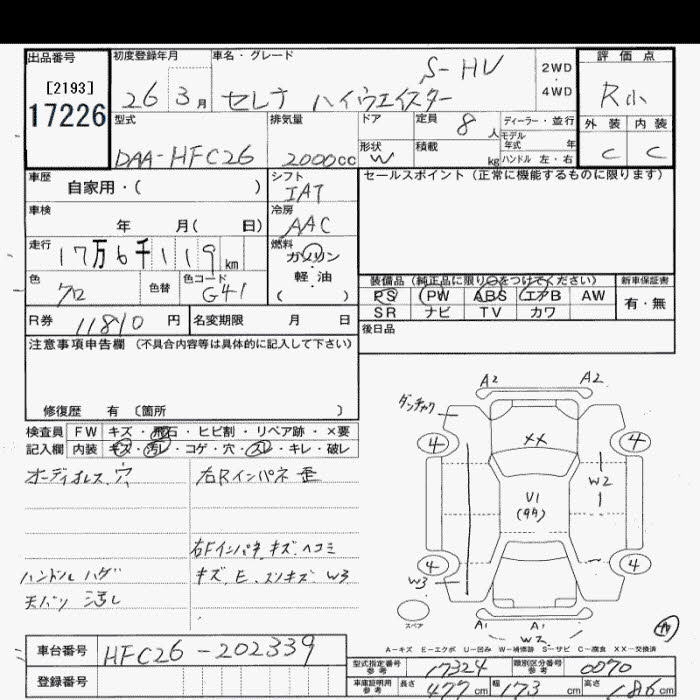 出品番号
[2193]
17226
初度登録年月
26 3月
車名・グレード
S-HV
セレナ ハイウエイスター
2WD
・
4WD
評価点
R小
外装 内装
C C
型式
DAA-HFC26
排気量
2000cc
ドア
形状
W
定員 8人
積載 kg
ディーラー・並行
モデル
年式 年
ハンドル 左・右
車歴
自家用・( )
シフト
IAT
セールスポイント(正常に機能するものに限ります)
車検
年 月( 日)
冷房
AAC
走行
17万6千119km
燃料
ガソリン
・
軽・油
( )
色
クロ
色替
色コード
G41
装備品(純正品に限り○をつけてください)
PS PW ABS エアB AW
SR ナビ TV カワ
新車保証書
有・無
R券 11810円
名変期限 月 日
後日品
注意事項申告欄(不具合内容等は具体的に記入して下さい)
修復歴 有〔箇所 〕
検査員 FW キズ・飛石・ヒビ割・リペア跡・×要
記入欄 内装 キズ・汚レ・コゲ・穴・スレ・キレ・破レ
オーディオレス、穴
右Rインパネ 歪
右Fインパネ キズ、ヘコミ
ハンドル ハゲ
キズ、E、スリキズ W3
天バリ 汚レ
A2 A2
4 4
XX
W2
U1
4 4
W3
スペア
A1 A1
W2
A-キズ E-エクボ U-凹み W-補修跡 S-サビ C-腐食 XX-交換済
車台番号 HFC26-202339
登録番号
型式指定番号
参考
17324
類別区分番号
参考
0070
車庫証明用
参考
長さ 477cm 幅 173cm 高さ 186cm